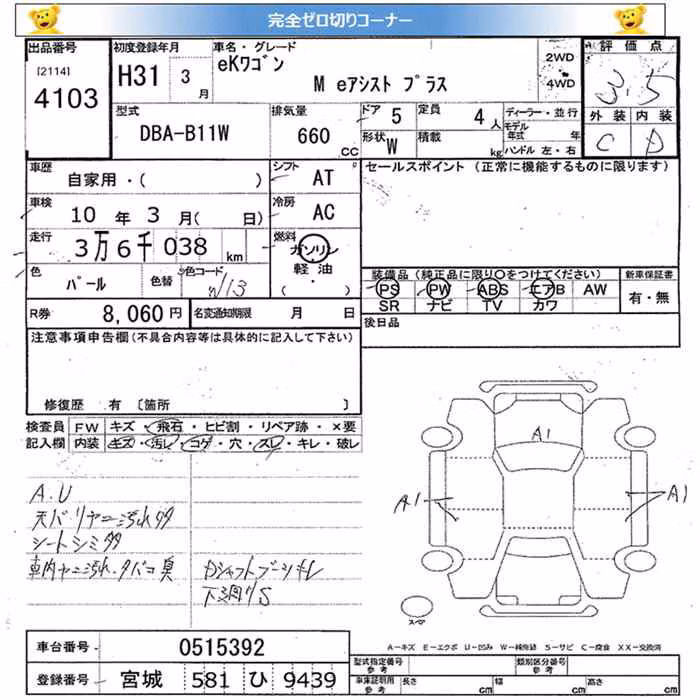 完全ゼロ切りコーナー
出品番号 [2114] 4103
初度登録年月 H31 3月
車名・グレード eKワゴン M eアシスト プラス
2WD・4WD
評価点 3.5
外装 C 内装 D
型式 DBA-B11W
排気量 660cc
ドア 5 定員 4人
形状 W 積載 kg
ディーラー・並行
モデル年式 年
ハンドル 左・右
車歴 自家用・( )
シフト AT
車検 10年3月( 日)
冷房 AC
走行 3万6千038km
燃料 ガソリン 軽油 ( ・ )
色 パール 色替 色コード W13
セールスポイント (正常に機能するものに限ります)
装備品(純正品に限り○をつけてください) 新車保証書
PS PW ABS エアB AW 有・無
SR ナビ TV カワ
R券 8,060円 名変通知期限 月 日
後日品
注意事項申告欄(不具合内容等は具体的に記入して下さい)
修復歴 有 〔箇所 〕
検査員記入欄 FW キズ・飛石・ヒビ割・リペア跡・×要
内装 キズ・汚レ・コゲ・穴・スレ・キレ・破レ
A.U
天バリヤニ汚れ多
シートシミ多
車内ヤニ汚れ.タバコ臭
Dシャフトブーツキレ
下廻りS
A1
A1
A1
スペア
A-キズ E-エクボ U-凹み W-補修跡 S-サビ C-腐食 XX-交換済
車台番号 0515392
登録番号 宮城 581 ひ 9439
型式指定番号 参考 類別区分番号 参考
車庫証明用 参考 長さ cm 幅 cm 高さ cm